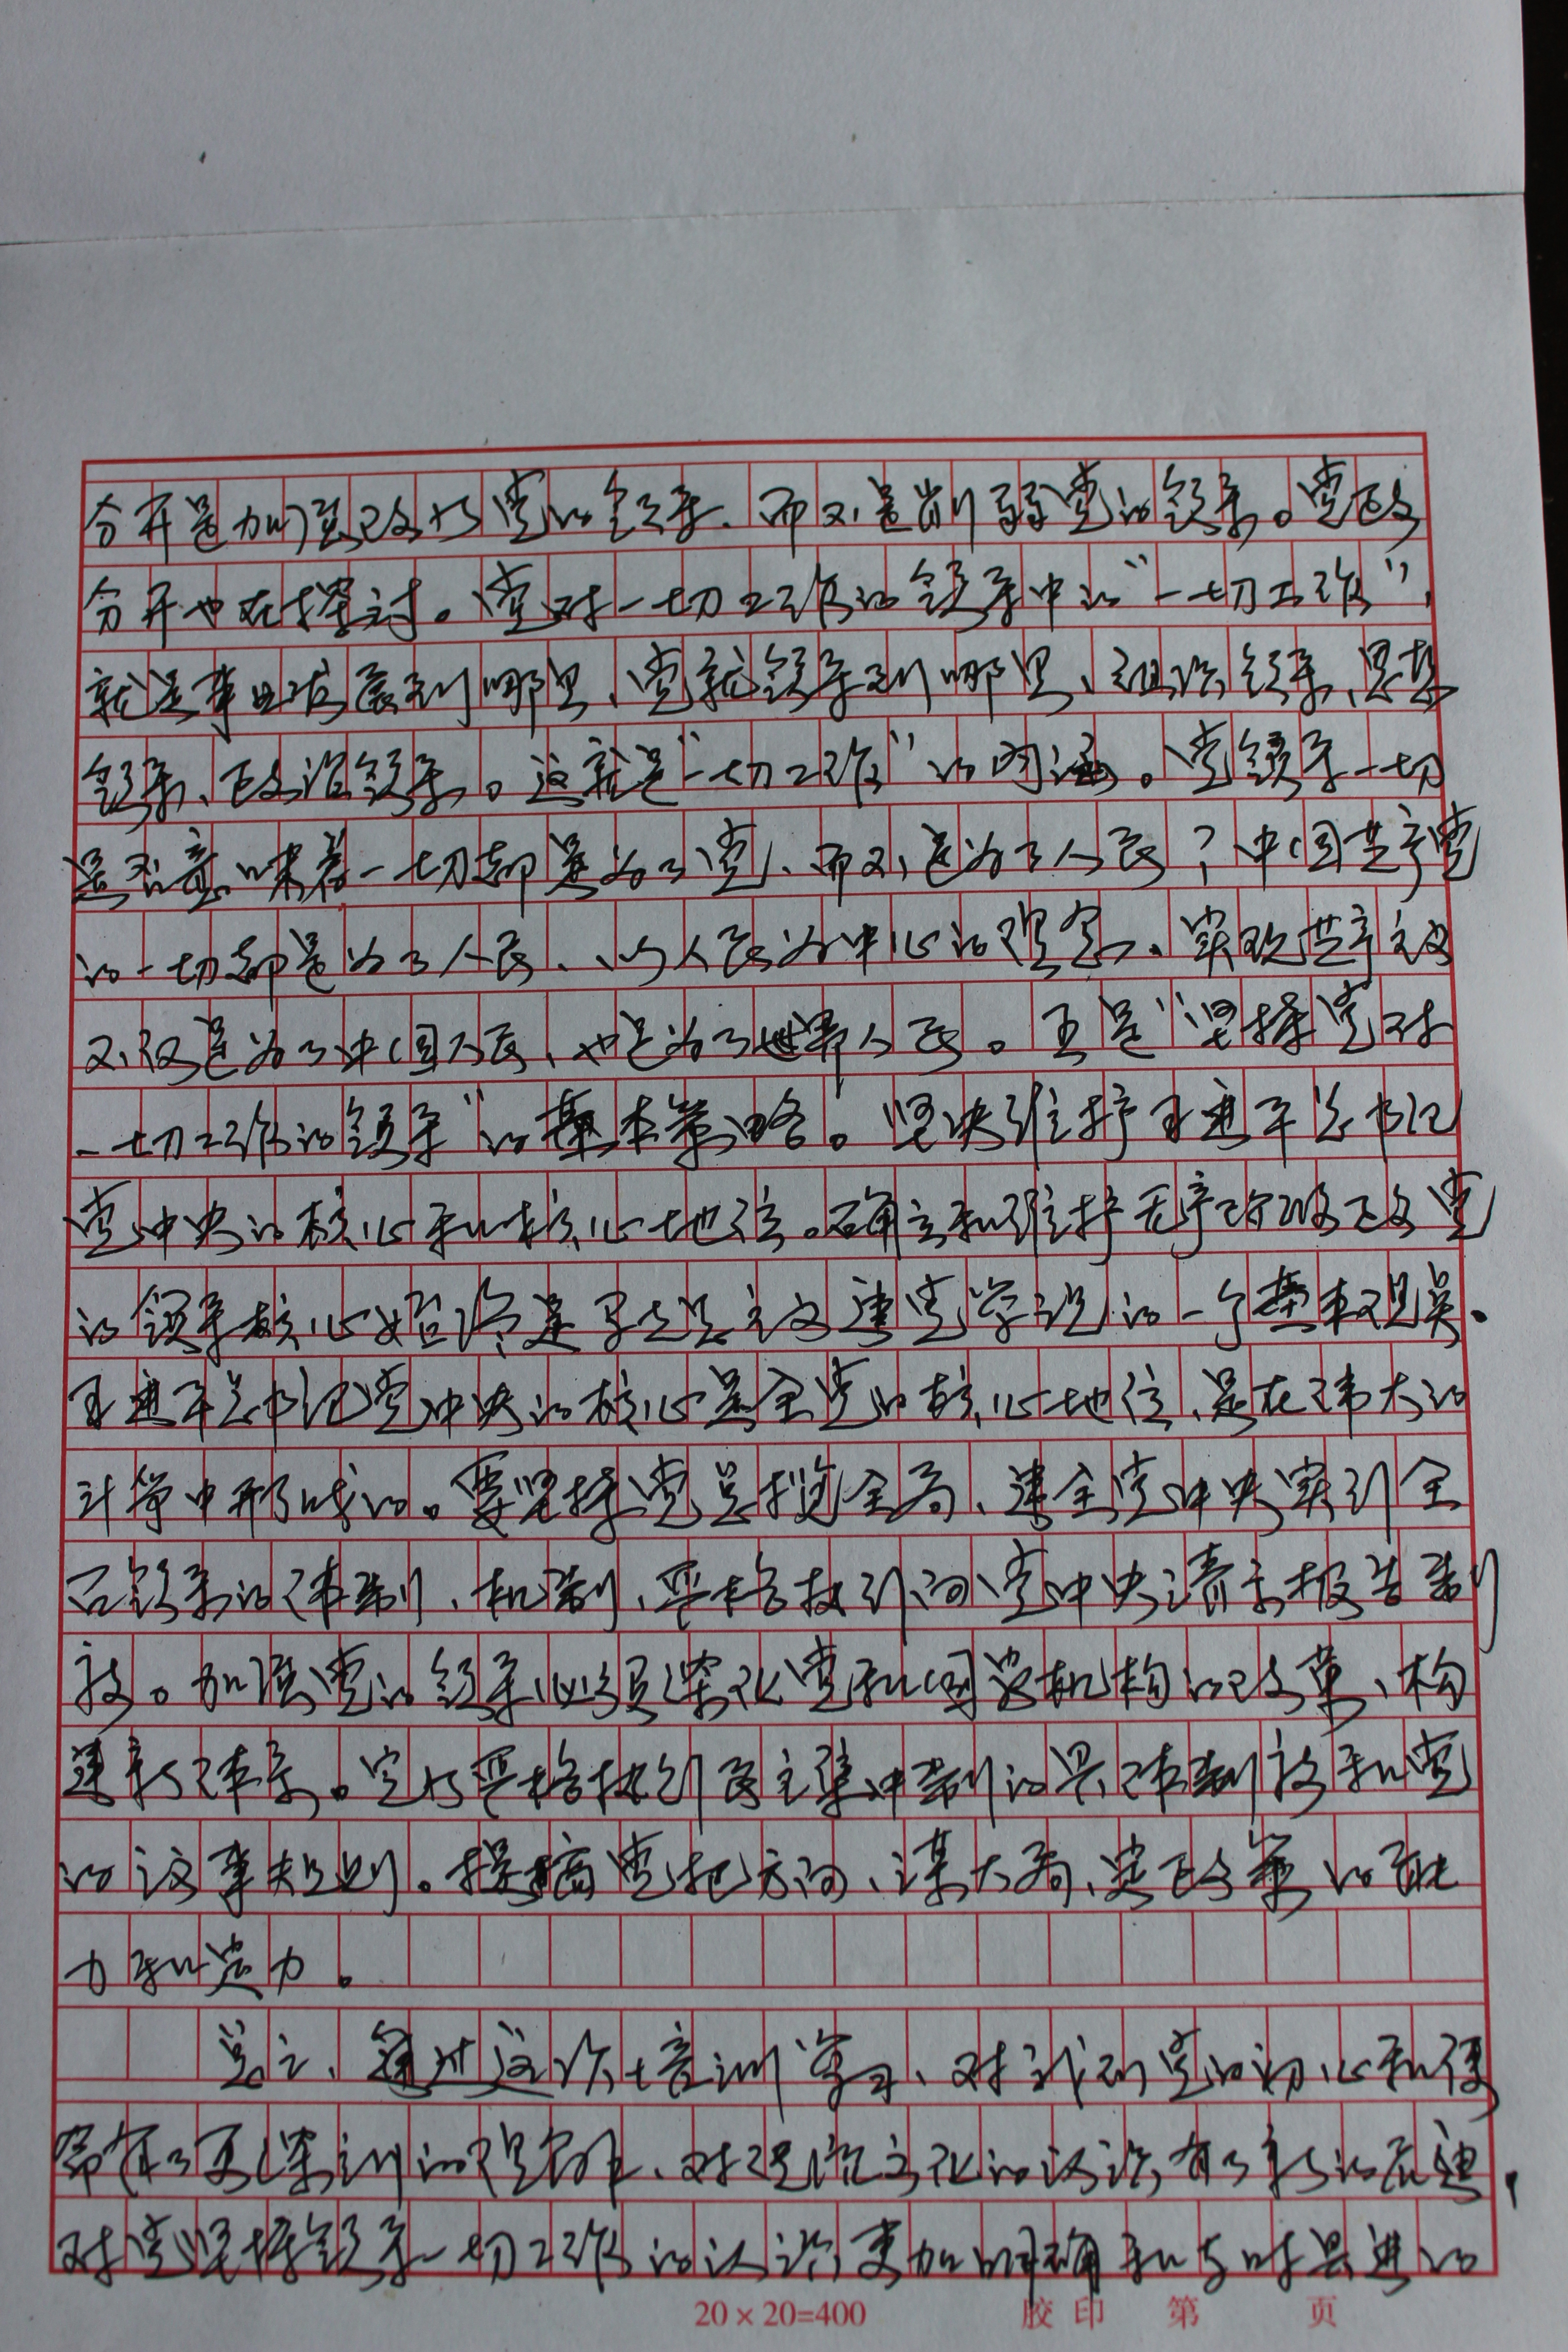 分开是加强改好党的领导、而不是削弱党的领导。党政
分开也在探讨。党对一切工作的领导中的“一切工作”，
就是事业发展到哪里、党就领导到哪里、组织领导、思想
领导、政治领导。这就是“一切工作”的内涵。党领导一切
是否意味着一切都是为了党、而不是为了人民？中国共产党
的一切都是为了人民、以人民为中心的理念、实现共产主义
不仅是为了中国人民、也是为了世界人民。五是“坚持党对
一切工作的领导”的基本策略。坚决维护习近平总书记
党中央的核心和核心地位。确立和维护无产阶级政党
的领导核心始终是马克思主义建党学说的一个基本观点、
习近平总书记党中央的核心是全党的核心地位、是在伟大的
斗争中形成的。要坚持党总揽全局、建全党中央实行全
面领导的体制、机制、严格执行向党中央请示报告制
度。加强党的领导必须深化党和国家机构的改革、构
建新体系。完好严格执行民主集中制的具体制度和党
的议事规则。提搞党把方向、谋大局、定政策的能
力和定力。
总之、通过这次培训学习、对我们党的初心和使
命有了更深刻的理解、对理论文化的认识有了新的
对党坚持领导一切工作的认识更加明确和与时具进的
20×20=400 胶印 第 页